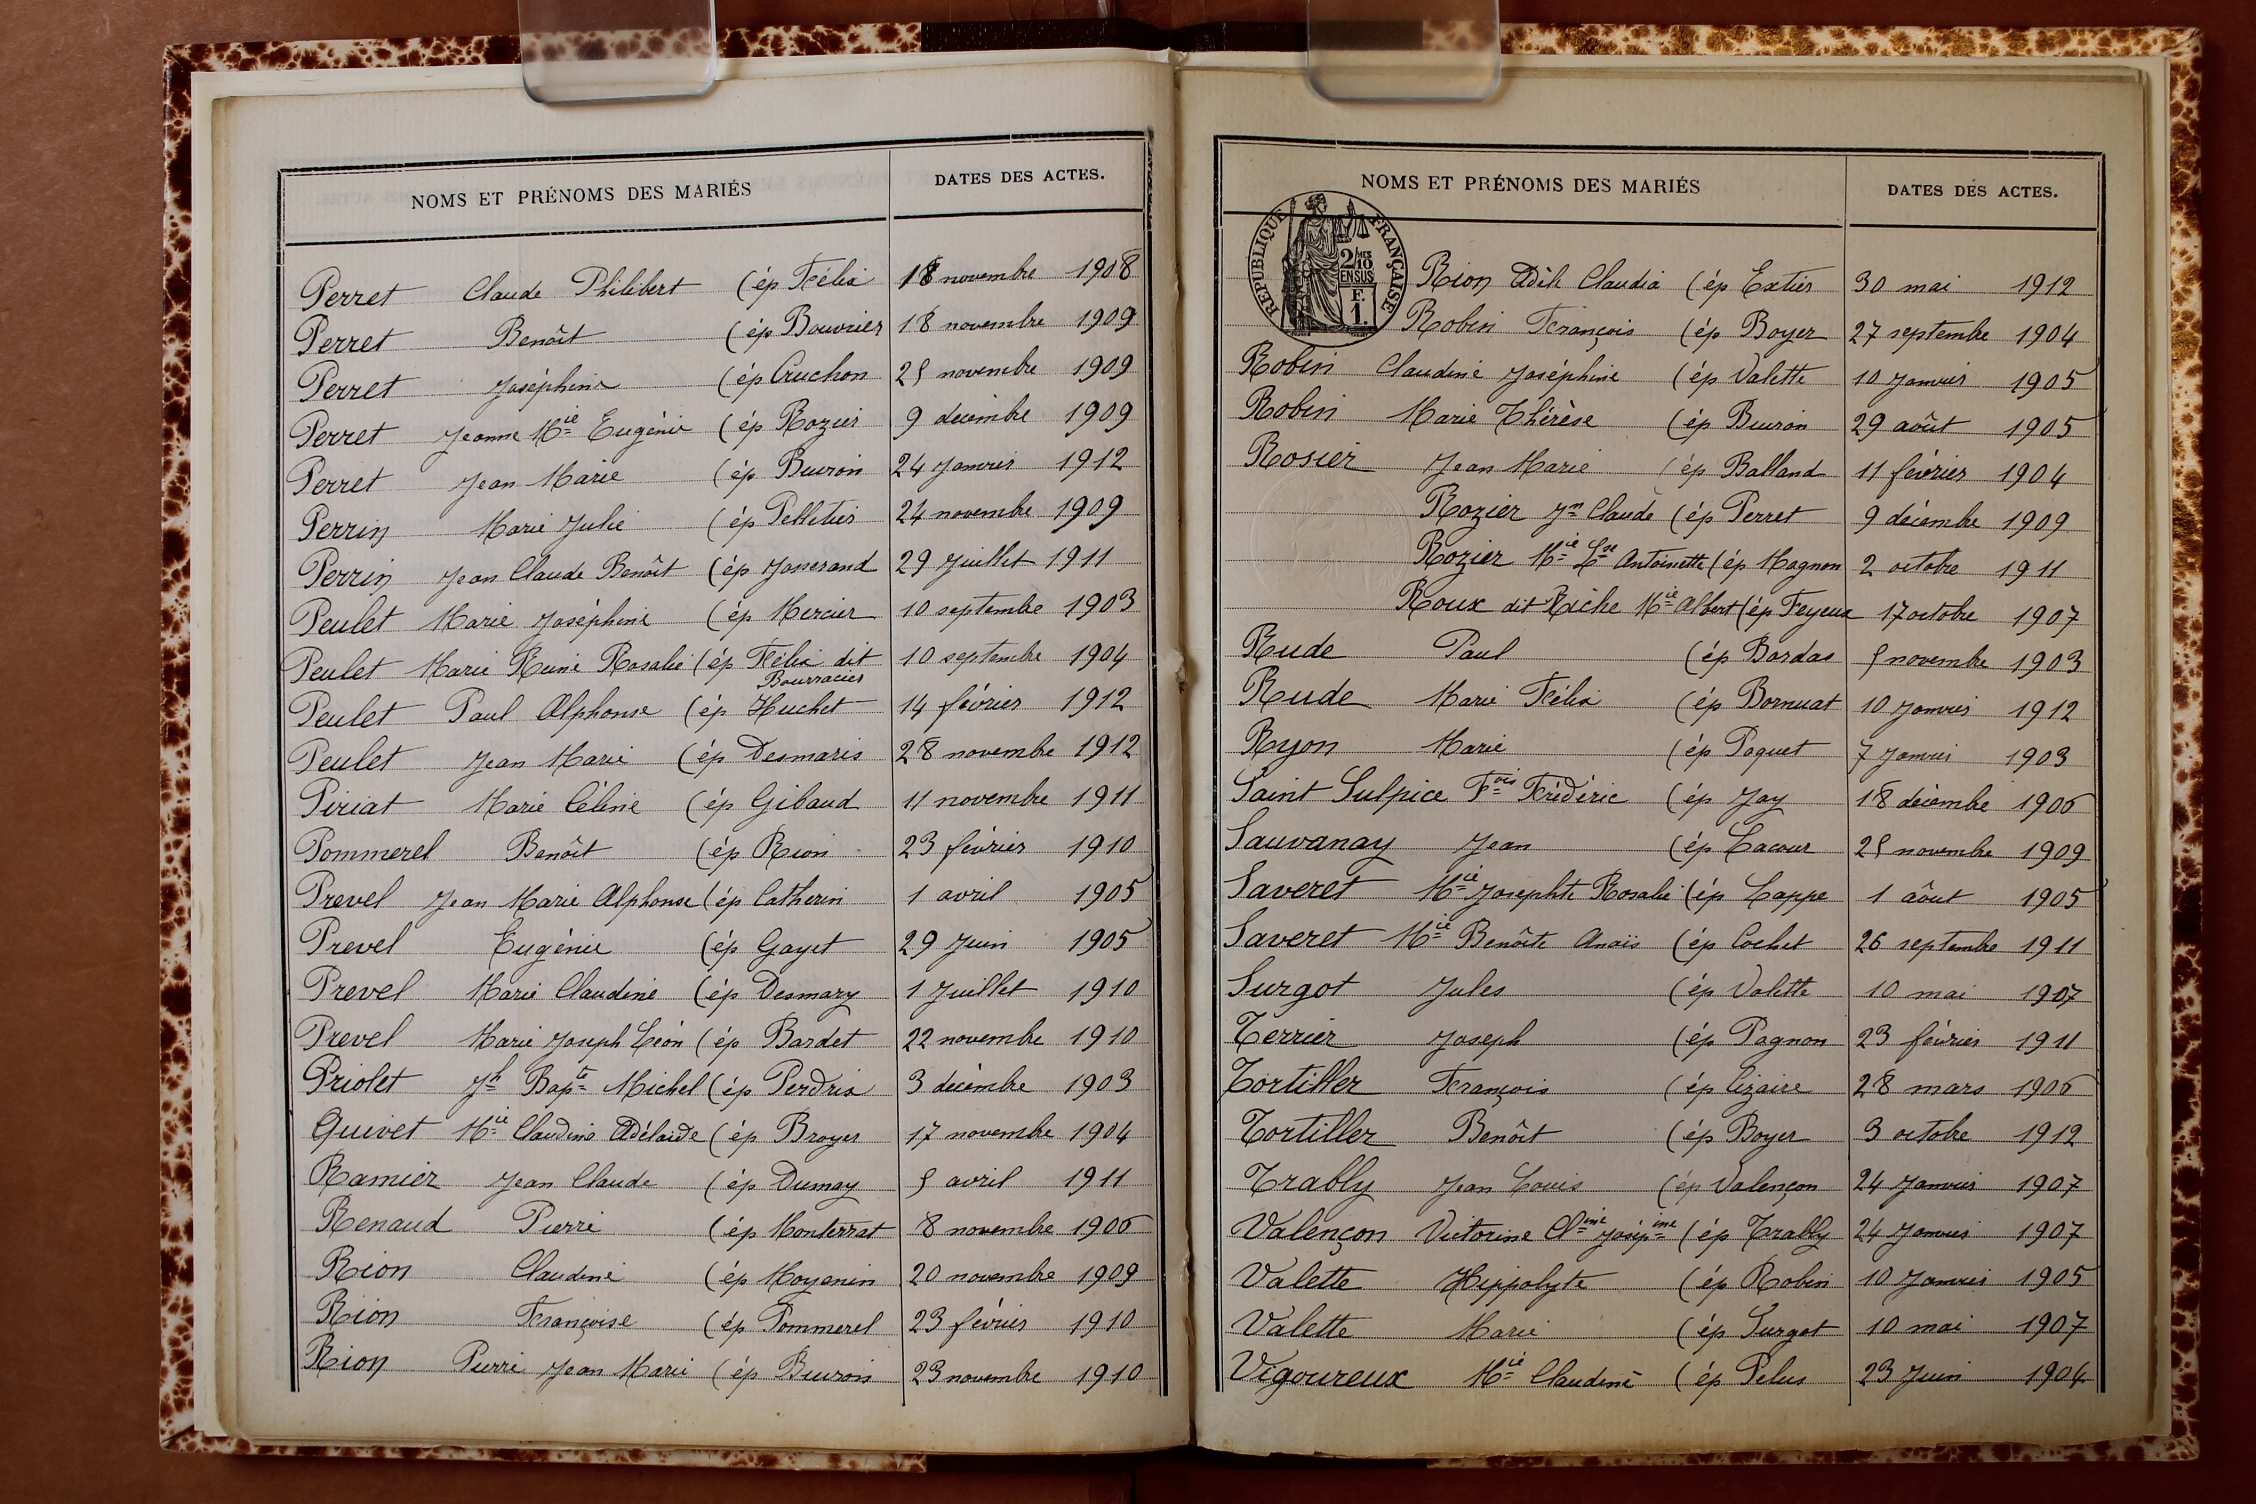 NOMS ET PRÉNOMS DES MARIÉS DATES DES ACTES.
Perret Claude Philibert (ép Félix 18 novembre 1908
Perret Benoît (ép Bouvier 18 novembre 1909
Perret Joséphine (ép Cruchon 25 novembre 1909
Perret Jeanne Mie Eugénie (ép Rozier 9 décembre 1909
Perret Jean Marie (ép Buiron 24 Janvier 1912
Perrin Marie Julie (ép Pelletier 24 novembre 1909
Perrin Jean Claude Benoît (ép Josserand 29 Juillet 1911
Peulet Marie Joséphine (ép Mercier 10 septembre 1903
Peulet Marie Reine Rosalie (ép Félix dit 10 septembre 1904
Bourracier
Peulet Paul Alphonse (ép Huchet 14 février 1912
Peulet Jean Marie (ép Desmaris 28 novembre 1912
Piriat Marie Céline (ép Gibaud 11 novembre 1911
Pommerel Benoît (ép Rion 23 février 1910
Prevel Jean Marie Alphonse (ép Catherin 1 avril 1905
Prevel Eugénie (ép Gayet 29 Juin 1905
Prevel Marie Claudine (ép Desmary 1 Juillet 1910
Prevel Marie Joseph Léon (ép Bardet 22 novembre 1910
Priolet Jh Bapte Michel (ép Perdrix 3 décembre 1903
Quivet Mie Claudine Adélaïde (ép Broyer 17 novembre 1904
Ramier Jean Claude (ép Dumay 5 avril 1911
Renaud Pierre (ép Monterrat 8 novembre 1906
Rion Claudine (ép Moyenin 20 novembre 1909
Rion Françoise (ép Pommerel 23 février 1910
Rion Pierre Jean Marie (ép Buiron 23 novembre 1910
NOMS ET PRÉNOMS DES MARIÉS DATES DES ACTES.
RÉPUBLIQUE FRANÇAISE
2/10 EN SUS
F.
1.
Rion Adèle Claudia (ép Extier 30 mai 1912
Robin François (ép Boyer 27 septembre 1904
Robin Claudine Joséphine (ép Valette 10 Janvier 1905
Robin Marie Thérèse (ép Buiron 29 août 1905
Rosier Jean Marie (ép Balland 11 février 1904
Rozier Jn Claude (ép Perret 9 décembre 1909
Rozier Mie Lse Antoinette (ép Magnon 2 octobre 1911
Roux dit Riche Mie Albert (ép Feyeux 17 octobre 1907
Rude Paul (ép Bordas 5 novembre 1903
Rude Marie Félix (ép Bornuat 10 Janvier 1912
Ryon Marie (ép Paquet 7 Janvier 1903
Saint Sulpice Fois Frédéric (ép Jay 18 décembre 1906
Sauvanay Jean (ép Lacour 25 novembre 1909
Saveret Mie Josephte Rosalie (ép Lappe 1 août 1905
Saveret Mie Benôite Anaïs (ép Cochet 26 septembre 1911
Surgot Jules (ép Valette 10 mai 1907
Terrier Joseph (ép Pagnon 23 février 1911
Tortiller François (ép Lizaire 28 mars 1906
Tortiller Benôit (ép Boyer 3 octobre 1912
Trably Jean Louis (ép Valençon 24 Janvier 1907
Valençon Victorine Cline Josépine (ép Trably 24 Janvier 1907
Valette Hippolyte (ép Robin 10 Janvier 1905
Valette Marie (ép Surgot 10 mai 1907
Vigoureux Mie Claudine (ép Pelus 23 Juin 1904